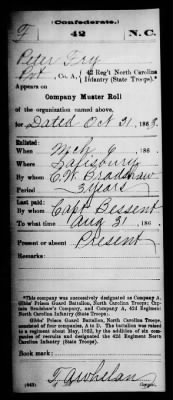 (Confederate.)
F 42 N. C.
Peter Fry
Pvt, Co. A, 42 Reg't North Carolina
Infantry (State Troops).*
Appears on
Company Muster Roll
of the organization named above,
for Dated Oct 31, 1863.
Enlisted:
When Mch 6, 186 .
Where Salisbury
By whom C. W. Bradshaw
Period 3 years
Last paid:
By whom Capt Bessent
To what time Aug 31, 186 .
Present or absent Present
Remarks:
*This company was successively designated as Company A,
Gibbs' Prison Guard Battalion, North Carolina Troops; Captain
Bradshaw's Company, and Company A, 42d Regiment
North Carolina Infantry (State Troops).
Gibbs' Prison Guard Battalion, North Carolina Troops,
consisted of four companies, A to D. The battalion was raised
to a regiment about May, 1862, by the addition of six companies
of recruits and designated the 42d Regiment North
Carolina Infantry (State Troops).
Book mark:
T. A. Whelan
(642) Copyist.